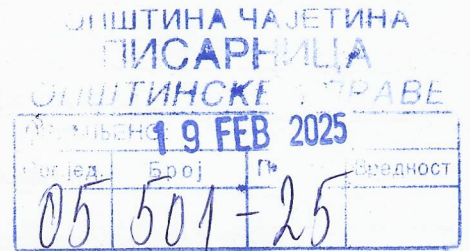 ОПШТИНА ЧАЈЕТИНА
ПИСАРНИЦА
ОПШТИНСКЕ УПРАВЕ
19 FEB 2025
Број Вредност
05 501-25